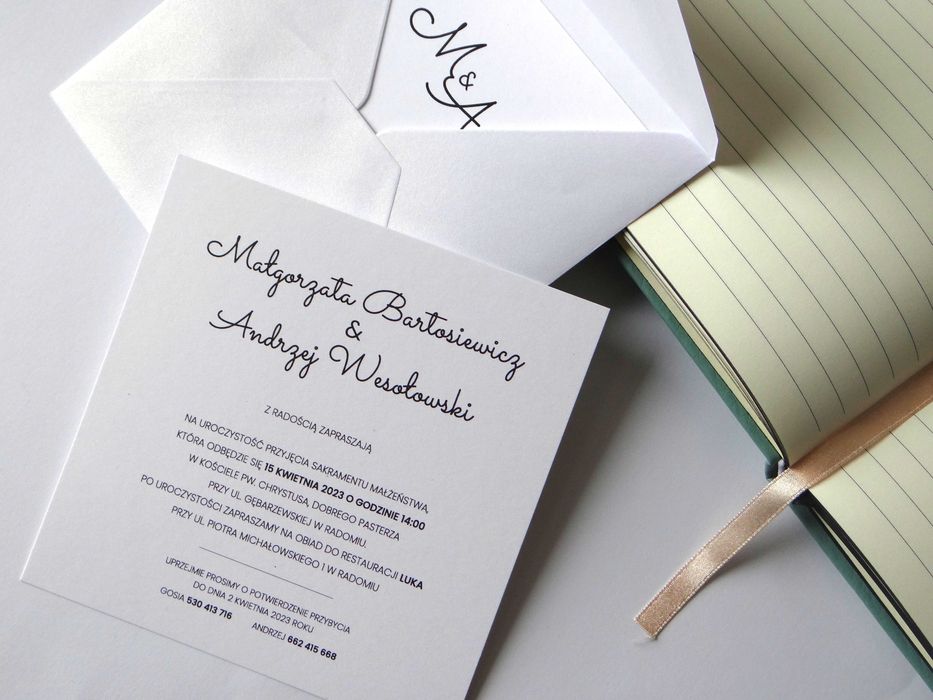 M
&
A
Małgorzata Bartosiewicz
&
Andrzej Wesołowski
Z RADOŚCIĄ ZAPRASZAJĄ
NA UROCZYSTOŚĆ PRZYJĘCIA SAKRAMENTU MAŁŻEŃSTWA,
KTÓRA ODBĘDZIE SIĘ 15 KWIETNIA 2023 O GODZINIE 14:00
W KOŚCIELE PW. CHRYSTUSA, DOBREGO PASTERZA
PRZY UL. GĘBARZEWSKIEJ W RADOMIU.
PO UROCZYSTOŚCI ZAPRASZAMY NA OBIAD DO RESTAURACJI LUKA
PRZY UL PIOTRA MICHAŁOWSKIEGO 1 W RADOMIU
UPRZEJMIE PROSIMY O POTWIERDZENIE PRZYBYCIA
DO DNIA 2 KWIETNIA 2023 ROKU
GOSIA 530 413 716 ANDRZEJ 662 415 668